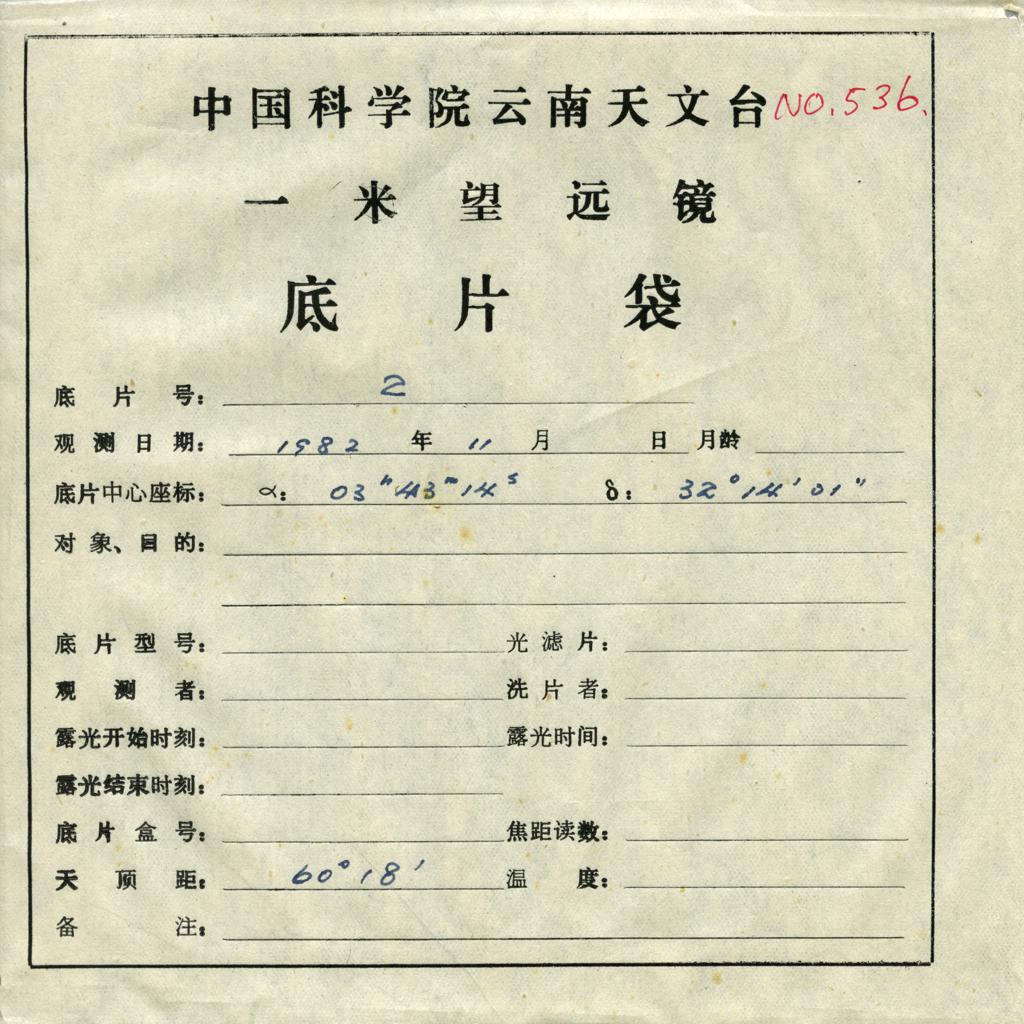 中国科学院云南天文台 NO.536.
一米望远镜
底片袋
底片号： 2
观测日期： 1982 年 11 月 日 月龄
底片中心座标： α： 03ʰ43ᵐ14ˢ δ： 32°14′01″
对象、目的：
底片型号： 光滤片：
观测者： 洗片者：
露光开始时刻： 露光时间：
露光结束时刻：
底片盒号： 焦距读数：
天顶距： 60°18′ 温度：
备注：